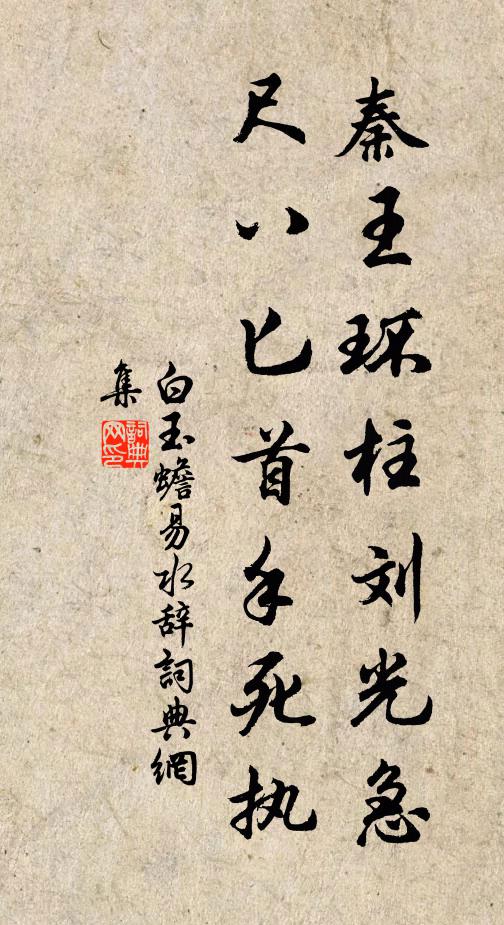 秦王环柱刘光急
尺八匕首手死执
白玉蟾易水辞詞典網
集
詞典网印